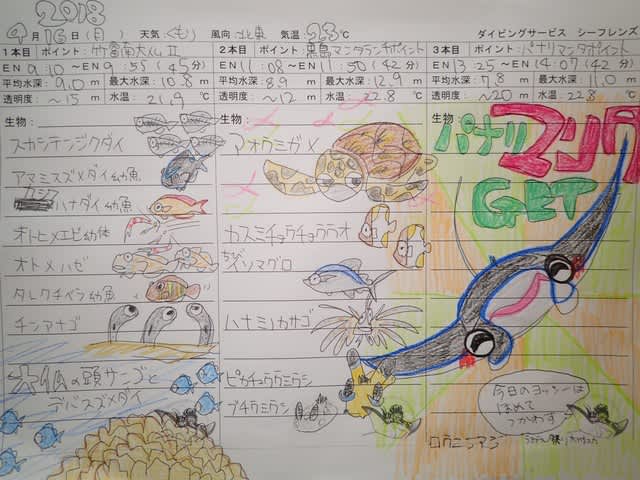 2018
9月16日(日) 天気:くもり 風向 北東 気温 23℃ ダイビングサービス シーフレンズ
1本目 ポイント:竹富南大仏Ⅱ
EN 9:10 ~EN 9:55 (45分)
平均水深:9.0m 最大水深:10.8m
透明度:~15m 水温:21.9℃
生物:
スカシテンジクダイ
アマミスズメダイ幼魚
カシワハナダイ幼魚
オトヒメエビ幼体
オトメハゼ
タレクチベラ幼魚
チンアナゴ
大仏の頭サンゴと
デバスズメダイ
2本目 ポイント:黒島マンタランチポイント
EN 11:08 ~EN 11:50 (42分)
平均水深:8.9m 最大水深:12.9m
透明度:~12m 水温:22.8℃
生物:
アオウミガメ
カスミチョウチョウウオ
ちび
イソマグロ
ハナミノカサゴ
ピカチュウウミウシ
ブチウミウシ
3本目 ポイント:パナリマンタポイント
EN 13:25 ~EN 14:07 (42分)
平均水深:7.8m 最大水深:11.0m
透明度:~20m 水温:22.8℃
生物:
パナリ
マンタ
GET
今日のヨッシーは
ほめて
つかわす
ロウニンアジ